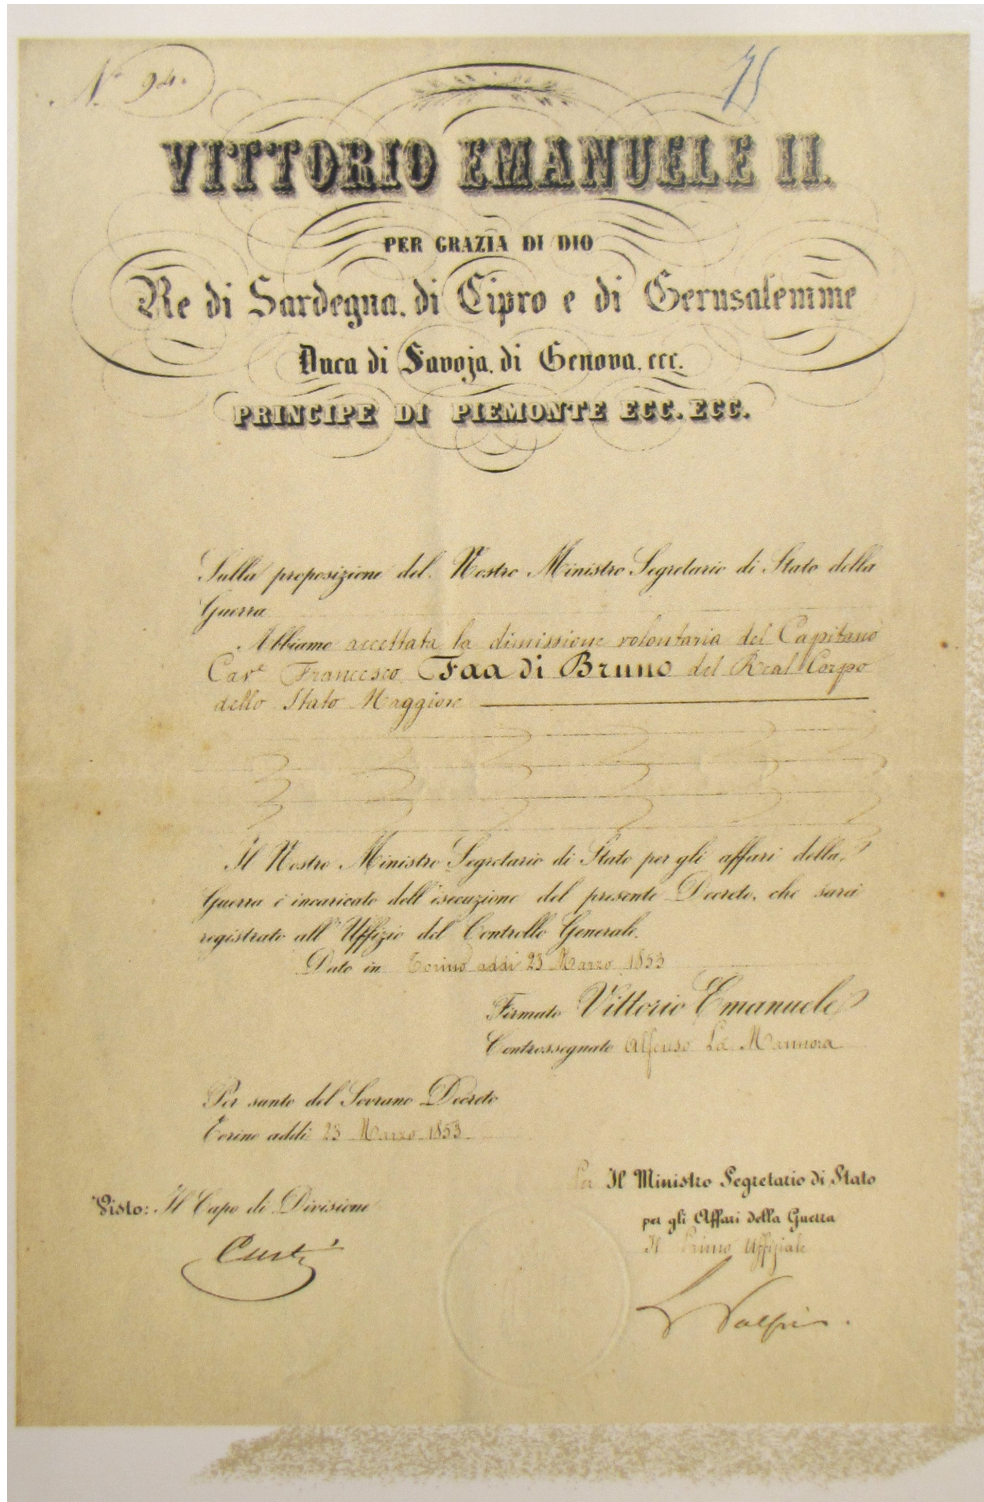 N. 94.
75
VITTORIO EMANUELE II.
PER GRAZIA DI DIO
Re di Sardegna, di Cipro e di Gerusalemme
Duca di Savoja, di Genova, ecc.
PRINCIPE DI PIEMONTE ECC. ECC.
Sulla proposizione del Nostro Ministro Segretario di Stato della
Guerra
Abbiamo accettata la dimissione volontaria del Capitano
Cav.e Francesco Faa di Bruno del Real Corpo
dello Stato Maggiore
Il Nostro Ministro Segretario di Stato per gli affari della
Guerra è incaricato dell'isecuzione del presente Decreto, che sarà
registrato all'Uffizio del Controllo Generale.
Dato in Torino addì 23 Marzo 1853
Firmato Vittorio Emanuele
Controssegnato Alfonso La Marmora
Per sunto del Sovrano Decreto
Torino addì 23 Marzo 1853
Per Il Ministro Segretario di Stato
per gli Affari della Guerra
Il Primo Uffiziale
Visto: Il Capo di Divisione